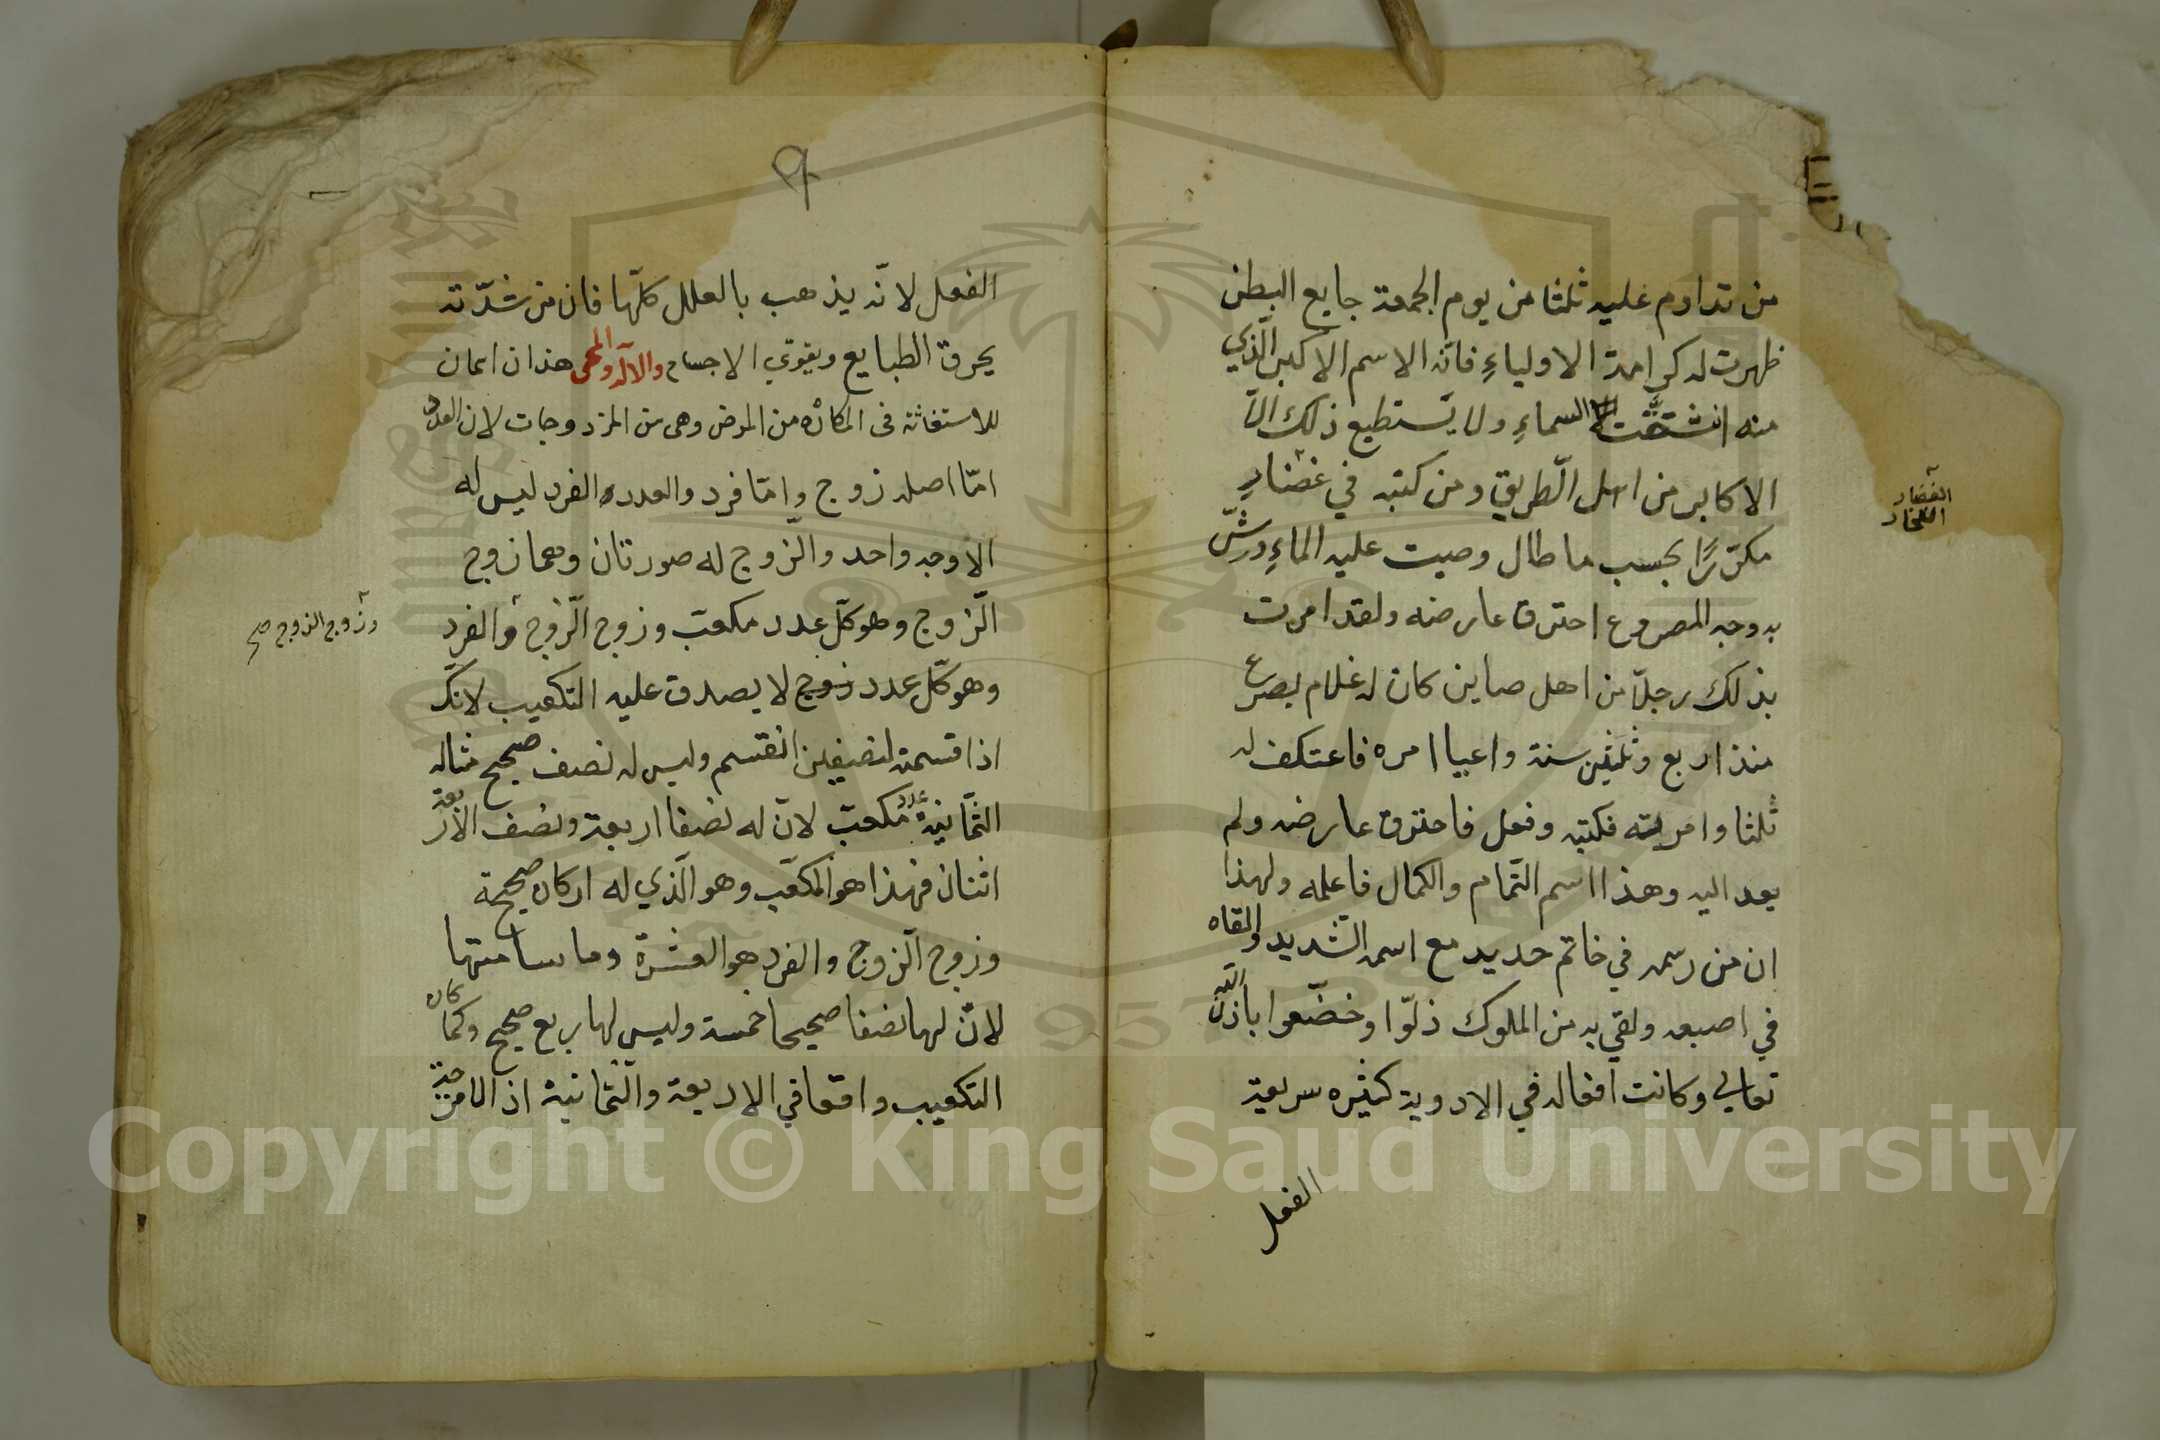 من تداوم عليه ثلثا من يوم الجمعة جايع البطن
ظهرت له كرامة الاولياءِ فانّه الاسم الاكبر الّذي
منه انشقّت السماءِ ولا يستطيع ذلك الّا
الاكابر من اهل الّطريق ومن كتبه في غضارٍ
مكرّرًا بحسب ما طال وصبت عليه الماءِ ورشّ
به وجه المصروع احترق عارضه ولقد امرت
بذلك رجلاً من اهل صاين كان له غلام يصرع
منذ اربع وثلثين سنة واعيا امره فاعتكف له
ثلثا وامريته فكتبه وفعل فاحترق عارضه ولم
يعد اليه وهذا اسم التّمام والكمال فاعلمه ولهذا
ان من رسمه في خاتم حديد مع اسمه الشّديد والقاه
في اصبعه ولقي به من الملوك ذلّوا وخضّعوا باذن اللّه
تعالي وكانت افعاله في الادوية كثيره سريعة
الفعل
الغضار
الفخار
٩
الفعل لانّه يذهب بالعلل كلّها فان من شدّته
يحرق الطبايع ويقوي الاجسام والآله والمحى هذان اسمان
للاستغاثة فى المكاره من المرض وهى من المزدوجات لان العدد
امّا اصله زوج وامّا فرد والعدد الفرد ليس له
الا وجه واحد والّزوج له صورتان وهما زوج
الّزوج وهو كلّ عدد مكعب وزوج الّزوج والفرد
وهو كلّ عدد زوج لا يصدق عليه التكعيب لانّك
اذا قسمته لنصيفين انقسم وليس له نصف صحيح مثاله
الثمّانية عدد مكعبّ لانّ له نصفا اربعة ونصف الاربعة
اثنان فهذا هو المكعّب وهو الّذي له اركان صحيحة
وزوج الّزوج والفرد هو العشرة وما سامتها
لانّ لها نصفا صحيحا خمسة وليس لها ربع صحيح وكما كان
التكعيب واقعا في الاربعة والّثمانية اذ الامزجة
وزوج الزوج صح